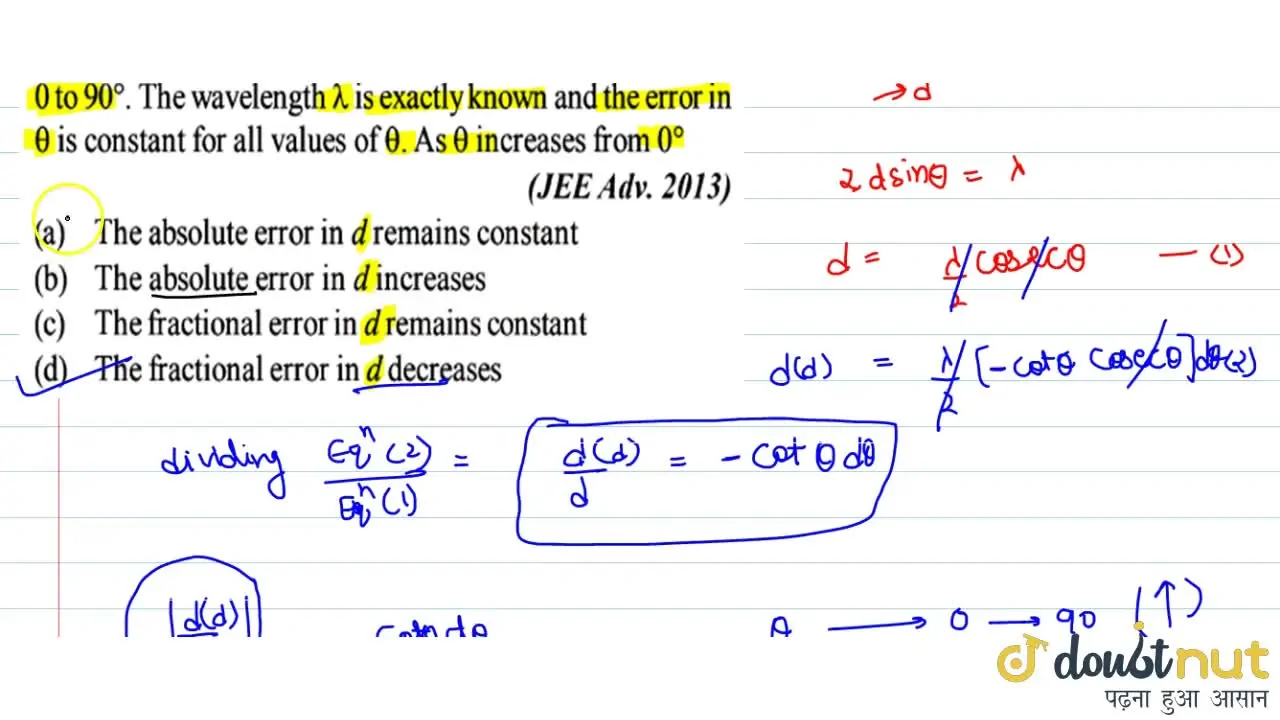 0 to 90°. The wavelength λ is exactly known and the error in
θ is constant for all values of θ. As θ increases from 0°
(JEE Adv. 2013)
(a) The absolute error in d remains constant
(b) The absolute error in d increases
(c) The fractional error in d remains constant
(d) The fractional error in d decreases
→ d
2 d sinθ = λ
d = λ/2 cosecθ — (1)
d(d) = λ/2 [-cotθ cosecθ] dθ (2)
dividing Eqⁿ (2) / Eqⁿ (1) = d(d)/d = - cot θ dθ
|d(d)| cotθ dθ
θ → 0 → 90 (↑)
doubtnut
पढ़ना हुआ आसान